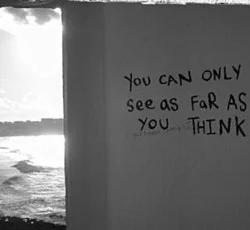 YOU CAN ONLY
see as FaR AS
YOU THINK